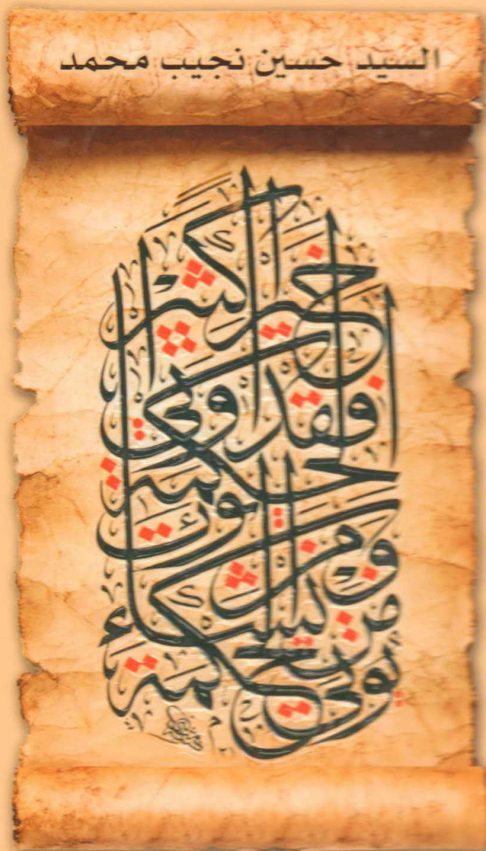 السيد حسين نجيب محمد
يؤتي الحكمة
من يشاء
ومن يؤت
الحكمة
فقد أوتي
خيرا كثيرا